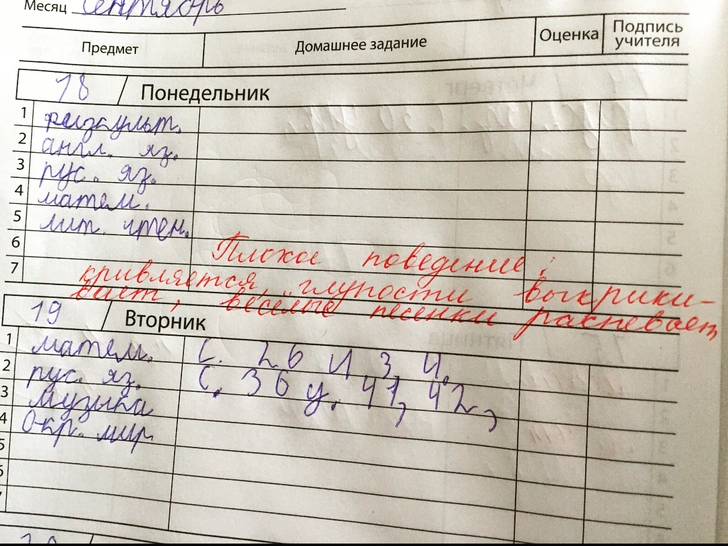 Месяц Сентябрь
Предмет Домашнее задание Оценка Подпись учителя
18 Понедельник
1 физкульт.
2 англ. яз.
3 рус. яз.
4 матем.
5 лит. чтен.
6 Плохое поведение:
7 кривляется, глупости выкрики-
вает, веселые песенки распевает
19 Вторник
1 матем. С. 26 И 3, 4.
2 рус. яз. С. 36 у. 41, 42,
3 музыка
4 Окр. мир
5
6